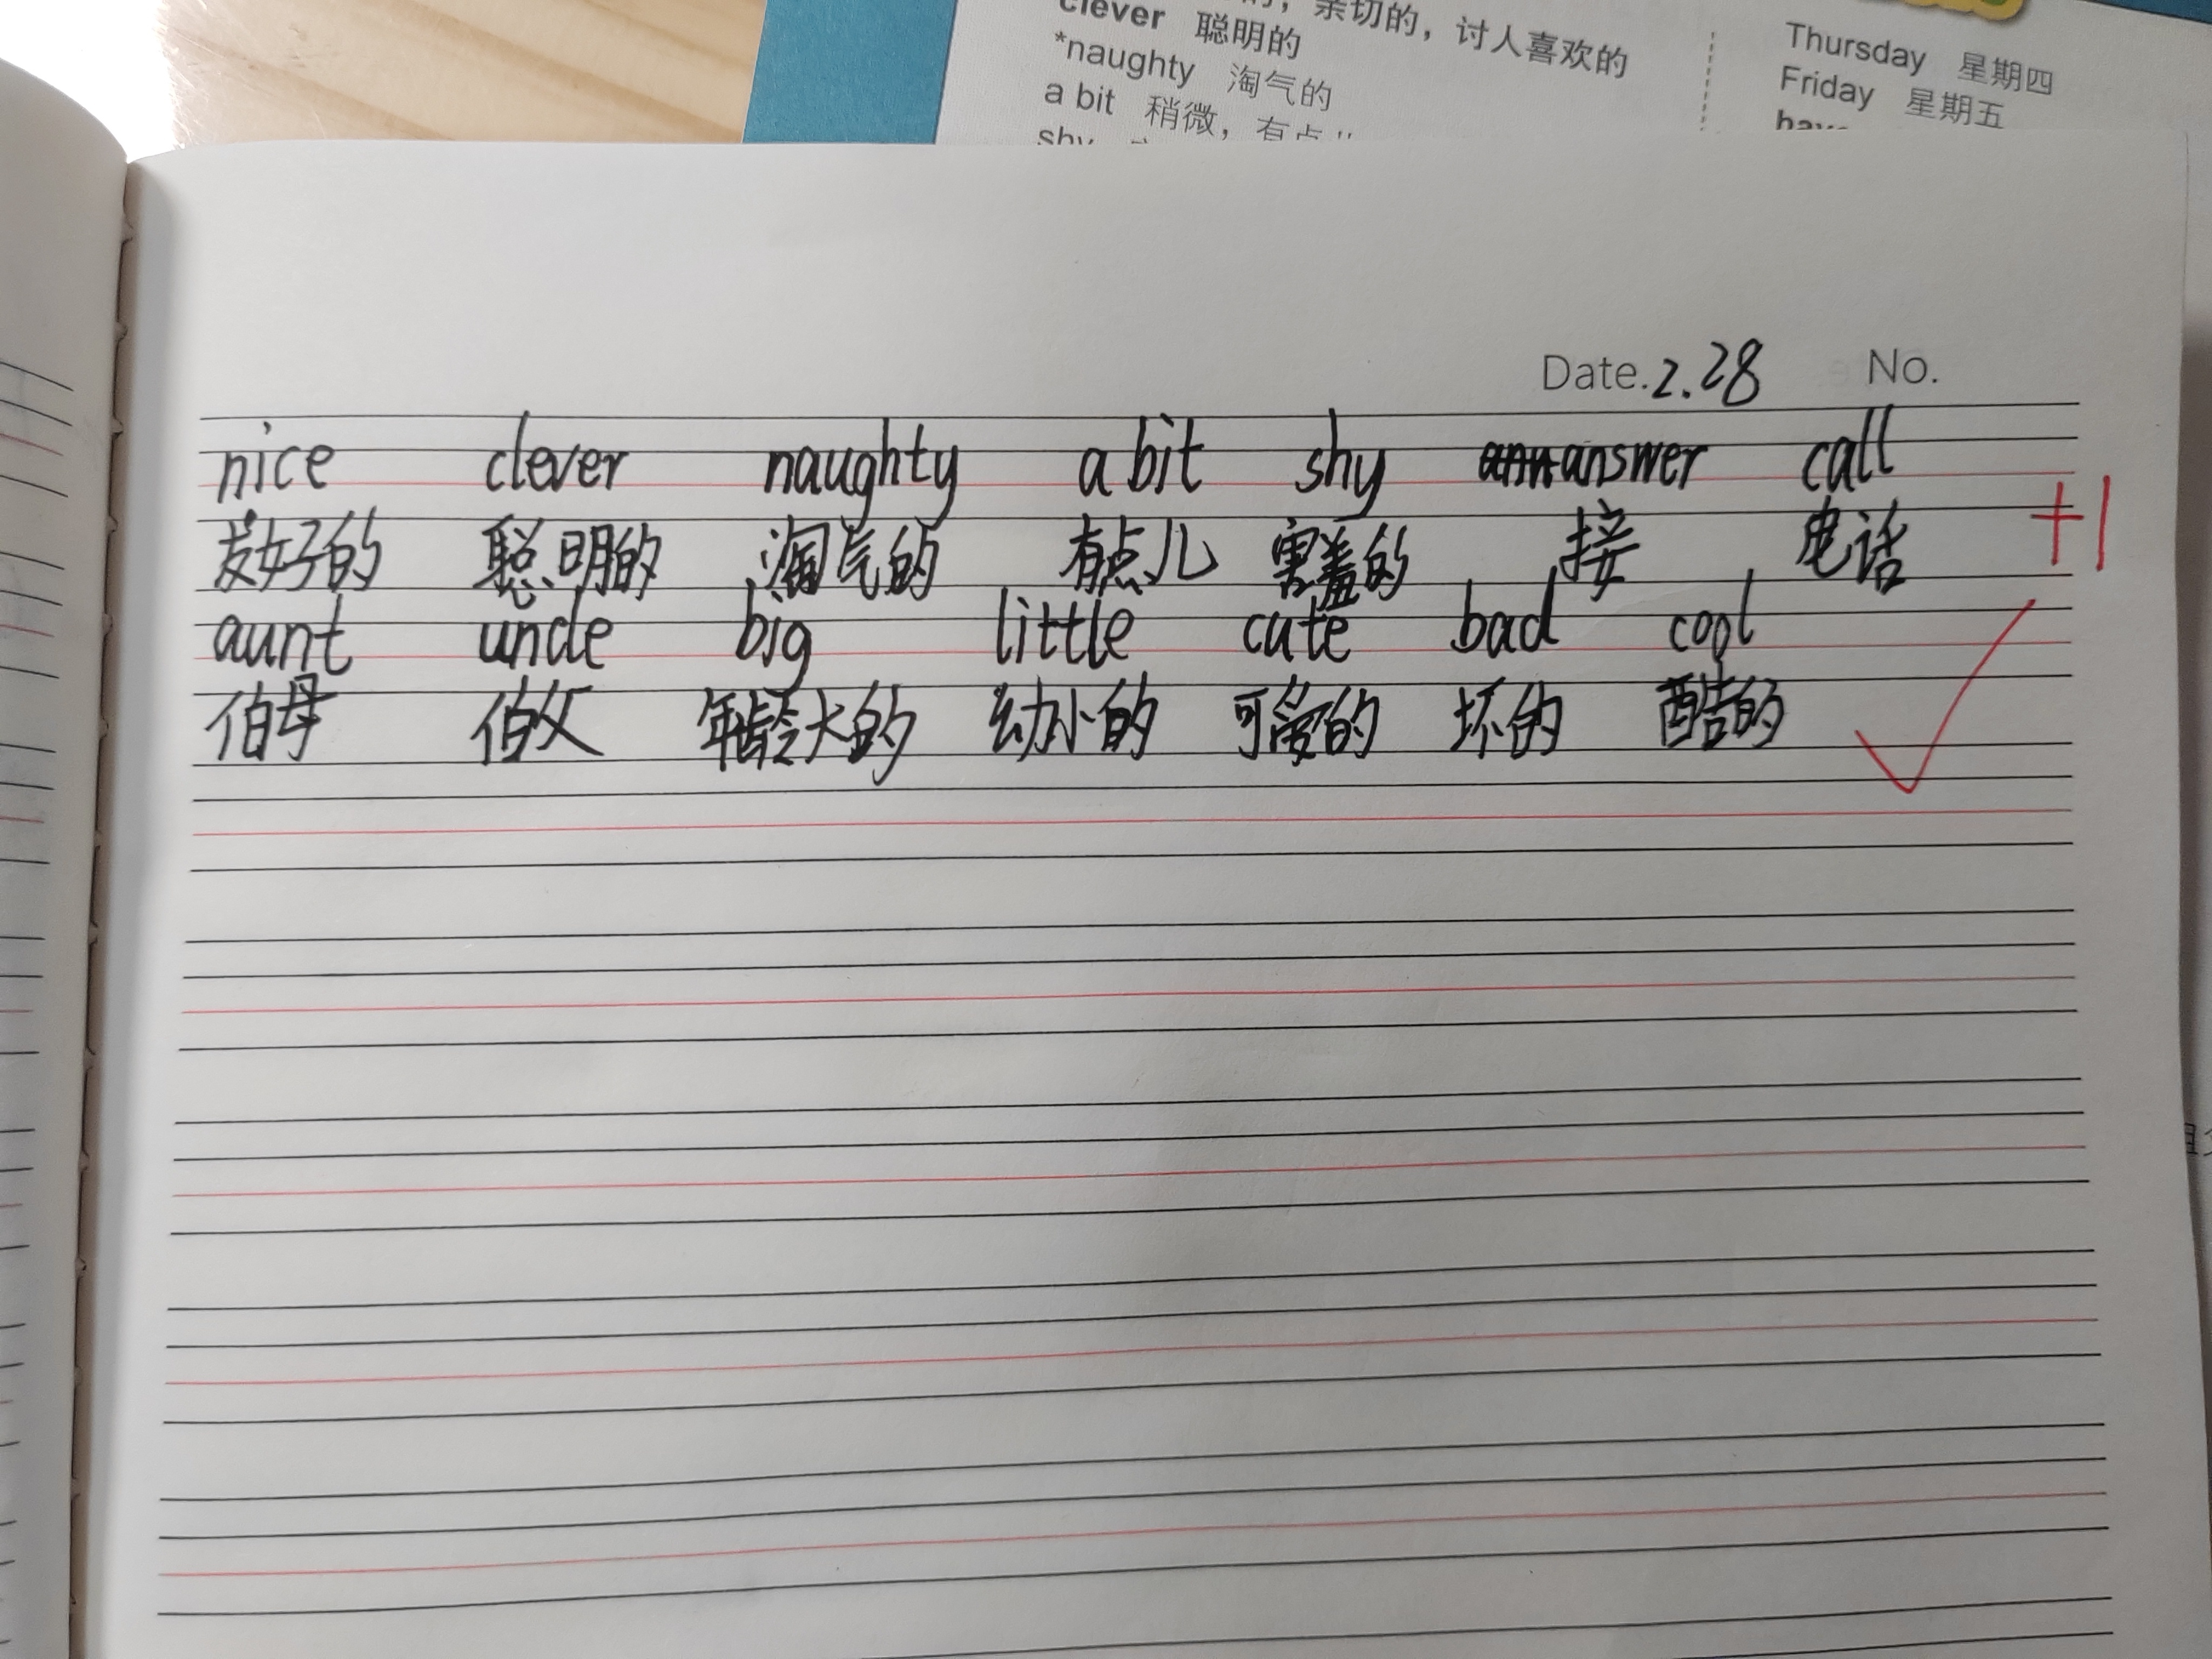 clever 聪明的
亲切的，讨人喜欢的
*naughty 淘气的
a bit 稍微，有点儿
shy
Thursday 星期四
Friday 星期五
have
Date.2.28 No.
nice clever naughty a bit shy answer call
友好的 聪明的 淘气的 有点儿 害羞的 接 电话
+1
aunt uncle big little cute bad cool
伯母 伯父 年龄大的 幼小的 可爱的 坏的 酷的